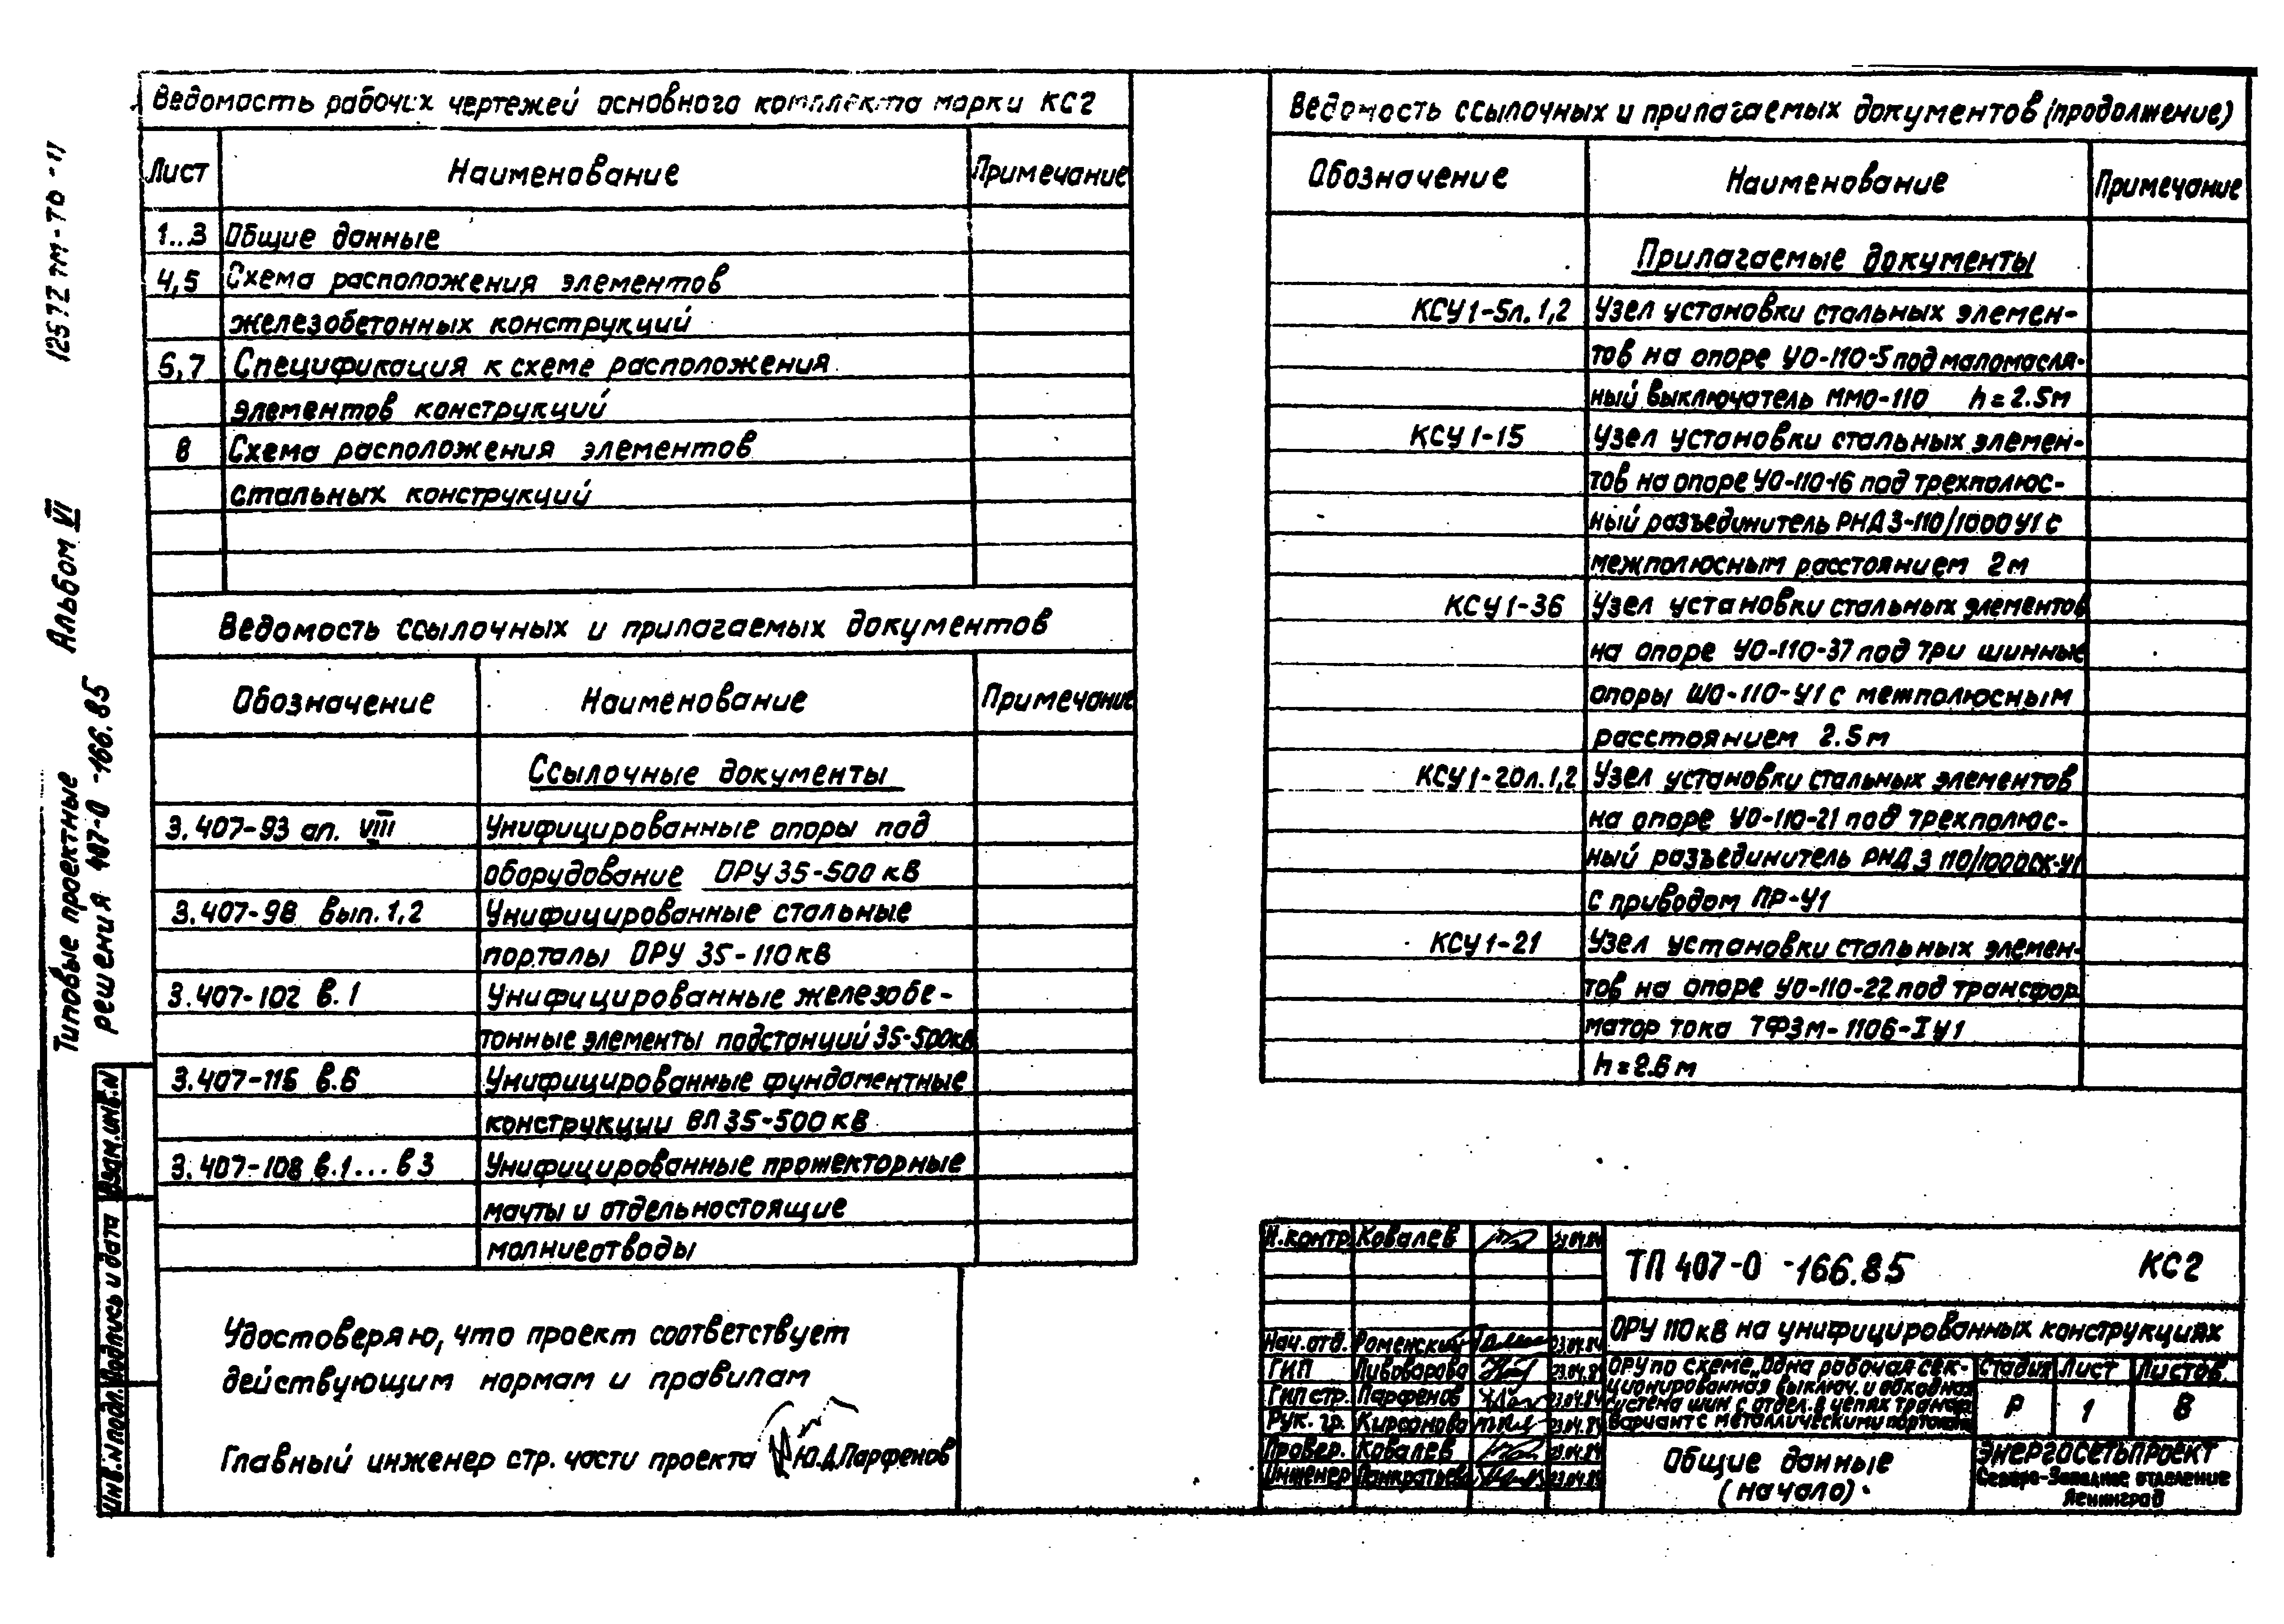 12572 тм-то-11
Альбом VI
Типовые проектные
решения 407-0 -166.85
Взам.инв.N
Подпись и дата
Инв.N подл.
Ведомость рабочих чертежей основного комплекта марки КС2
Лист Наименование Примечание
1..3 Общие данные
4,5 Схема расположения элементов
железобетонных конструкций
6,7 Спецификация к схеме расположения
элементов конструкций
8 Схема расположения элементов
стальных конструкций
Ведомость ссылочных и прилагаемых документов
Обозначение Наименование Примечание
Ссылочные документы
3.407-93 ал. VIII Унифицированные опоры под
оборудование ОРУ 35-500 кВ
3.407-98 вып.1,2 Унифицированные стальные
порталы ОРУ 35-110 кВ
3.407-102 в.1 Унифицированные железобе-
тонные элементы подстанций 35-500кВ
3.407-115 в.6 Унифицированные фундаментные
конструкции ВЛ 35-500 кВ
3.407-108 в.1...в3 Унифицированные прожекторные
мачты и отдельностоящие
молниеотводы
Удостоверяю, что проект соответствует
действующим нормам и правилам
Главный инженер стр. части проекта Ю.Д.Парфенов
Ведомость ссылочных и прилагаемых документов (продолжение)
Обозначение Наименование Примечание
Прилагаемые документы
КСУ1-5л.1,2 Узел установки стальных элемен-
тов на опоре УО-110-5 под маломасля-
ный выключатель ММО-110 h=2.5м
КСУ1-15 Узел установки стальных элемен-
тов на опоре УО-110-16 под трехполюс-
ный разъединитель РНДЗ-110/1000 У1 с
межполюсным расстоянием 2м
КСУ1-36 Узел установки стальных элементов
на опоре УО-110-37 под три шинные
опоры ШО-110-У1 с межполюсным
расстоянием 2.5м
КСУ1-20л.1,2 Узел установки стальных элементов
на опоре УО-110-21 под трехполюс-
ный разъединитель РНДЗ 110/1000СК-У1
с приводом ПР-У1
КСУ1-21 Узел установки стальных элемен-
тов на опоре УО-110-22 под трансфор
матор тока ТФЗМ-110Б-I У1
h=2.6м
Н.контр. Ковалев
Нач.отд. Роменский 23.04.84
ГИП Пивоварова 23.04.84
ГИП стр. Парфенов 23.04.84
Рук. гр. Кирсанова 23.04.84
Провер. Ковалев 23.04.84
Инженер Панкратьева 23.04.84
ТП 407-0 -166.85 КС2
ОРУ 110кВ на унифицированных конструкциях
ОРУ по схеме „Одна рабочая сек-
ционированная выключ. и обходная
система шин с отдел. в цепях трансф.
Вариант с металлическими порталами
Стадия Лист Листов
Р 1 8
Общие данные
(начало).
ЭНЕРГОСЕТЬПРОЕКТ
Северо-Западное отделение
Ленинград